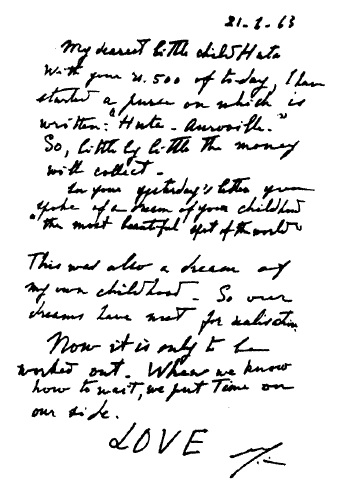 21-2-63
My dearest little child Huta
With your Rs. 500 of today, I have
started a purse on which is
written: "Huta - Auroville."
So, little by little the money
will collect -
In your yesterday's letter you
spoke of a dream of your childhood
"the most beautiful spot of the world"
This was also a dream of
my own childhood - So our
dreams have met for realisation
Now it is only to be
worked out. When we know
how to wait, we put Time on
our side.
LOVE